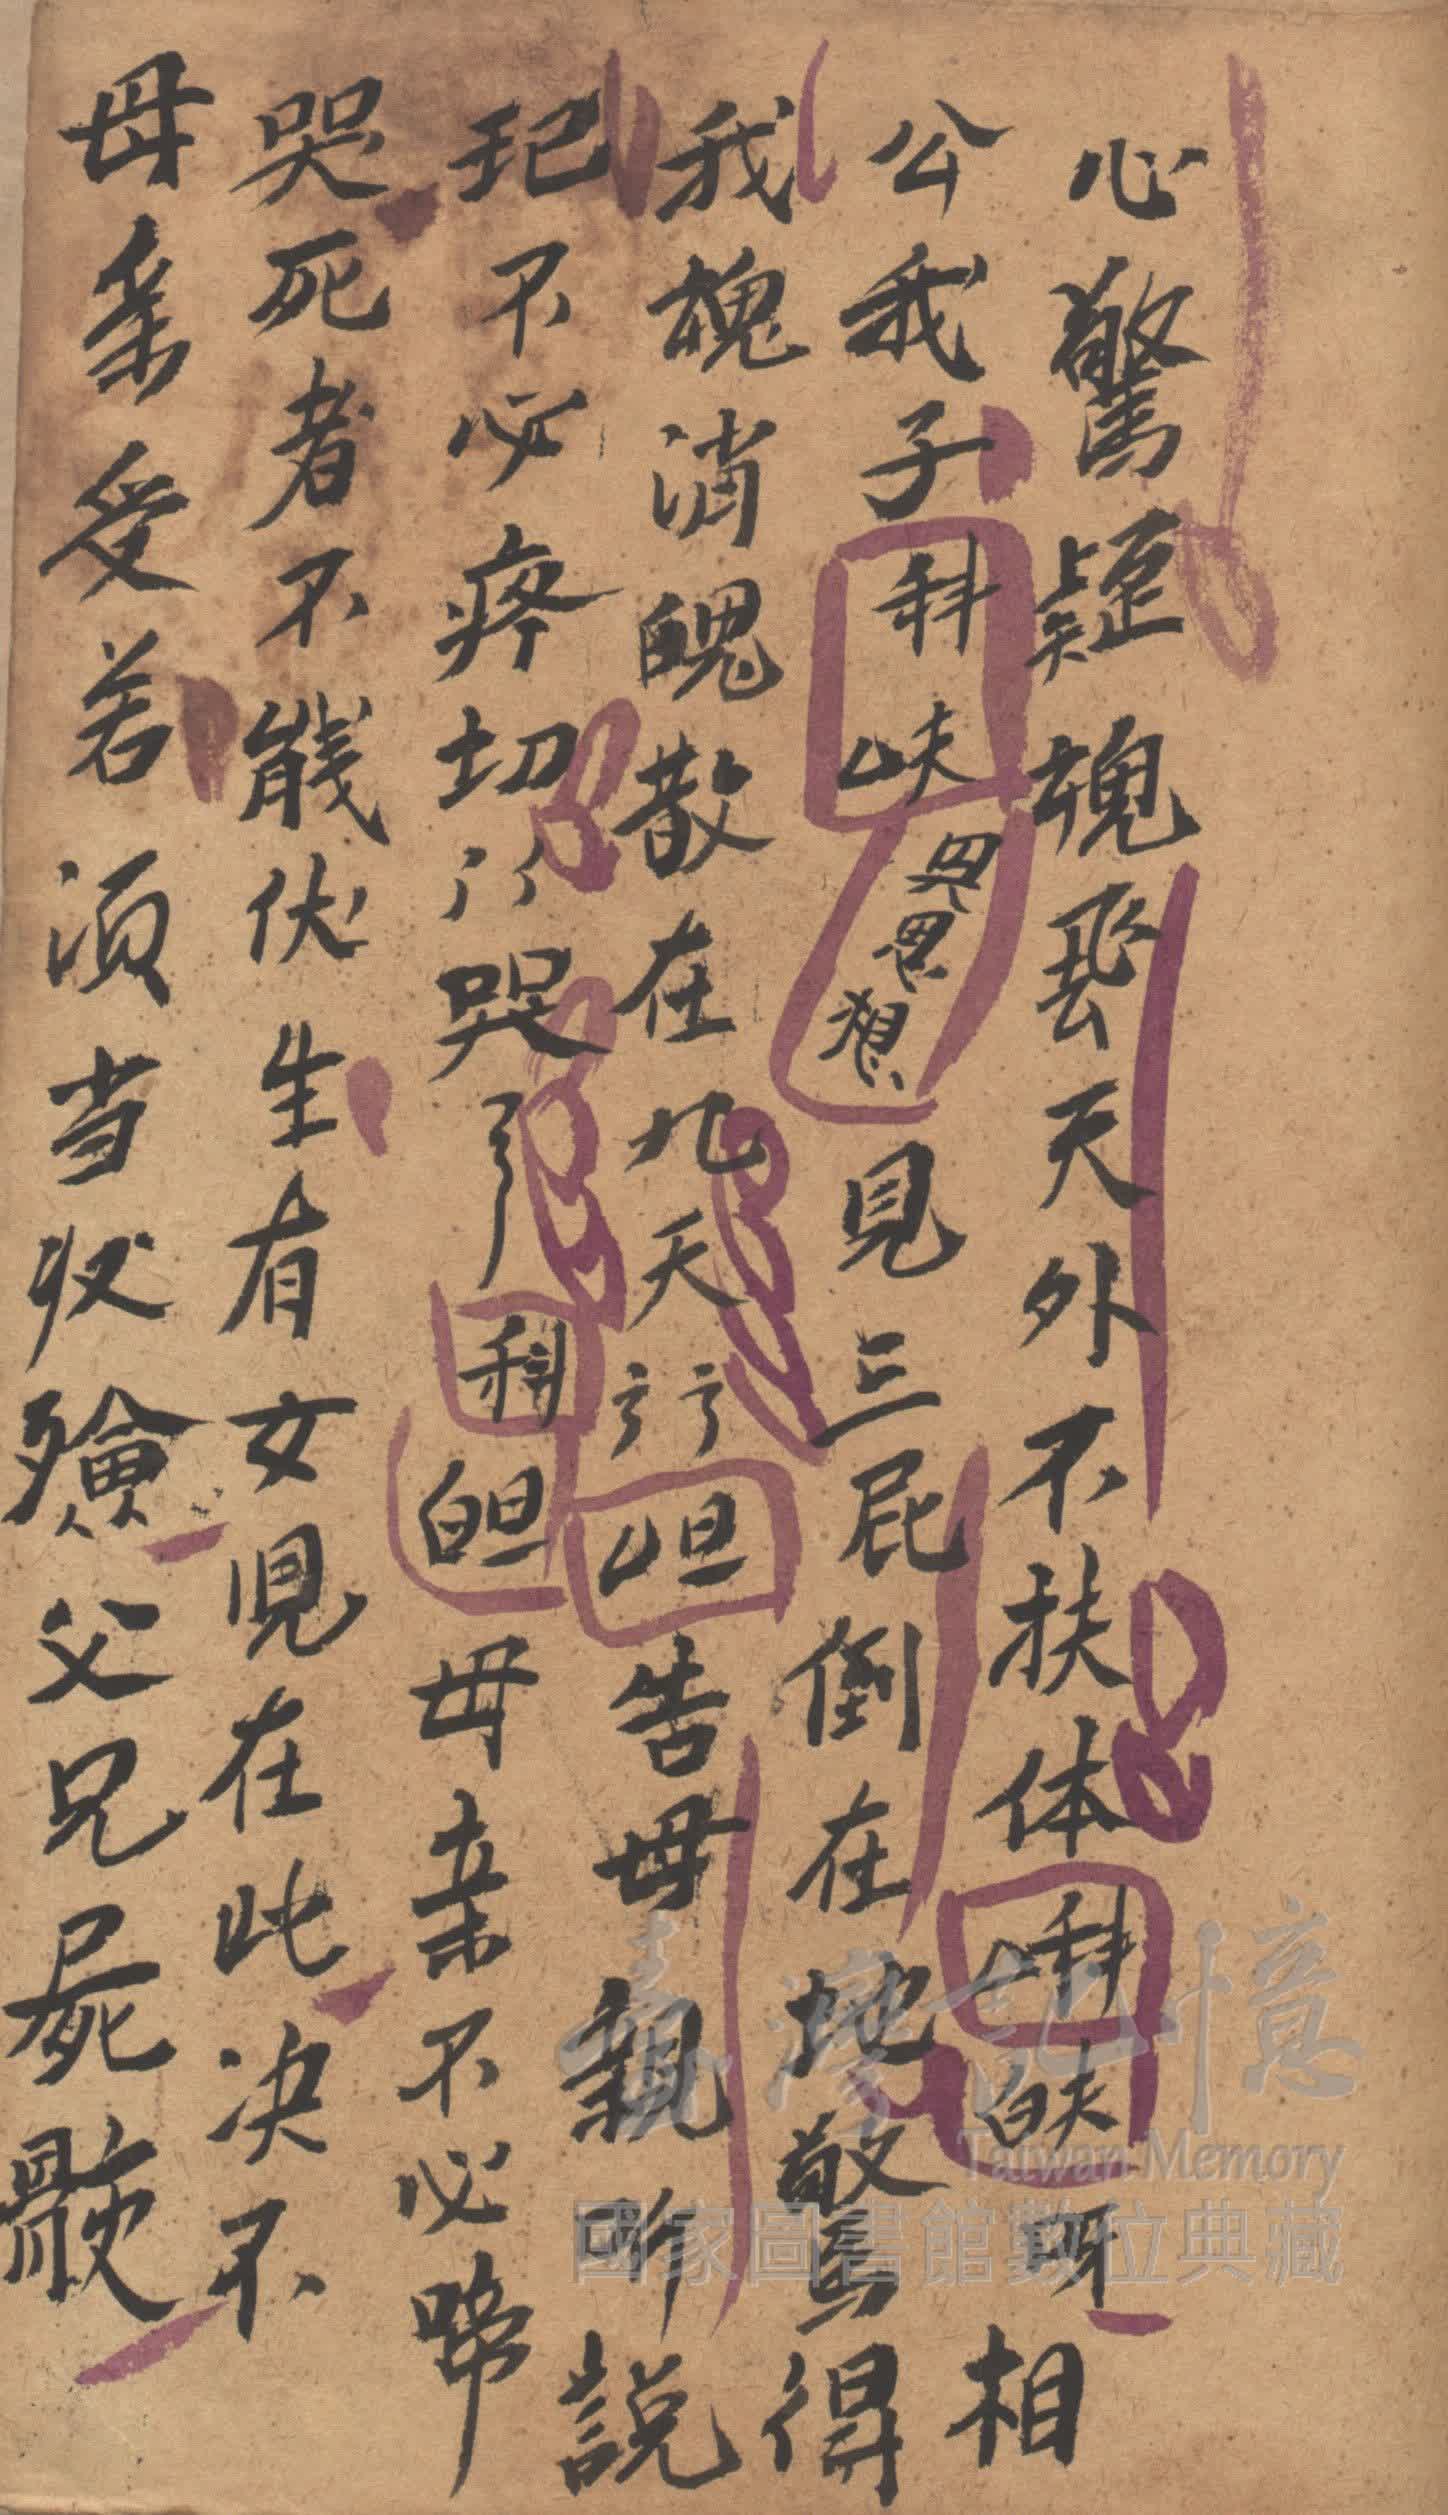 心驚疑魂飛天外不扶体科白夫呀相
公我子科唱夫四思想見三屍倒在地驚得
我魂消魄散在九天〻〻唱旦告母親听說
把不必疼切〻〻哭了科白旦母亲不必啼
哭死者不能伏生有女児在此决不
母亲受若須当收殮父兄屍骸
臺灣記憶
Taiwan Memory
國家圖書館數位典藏